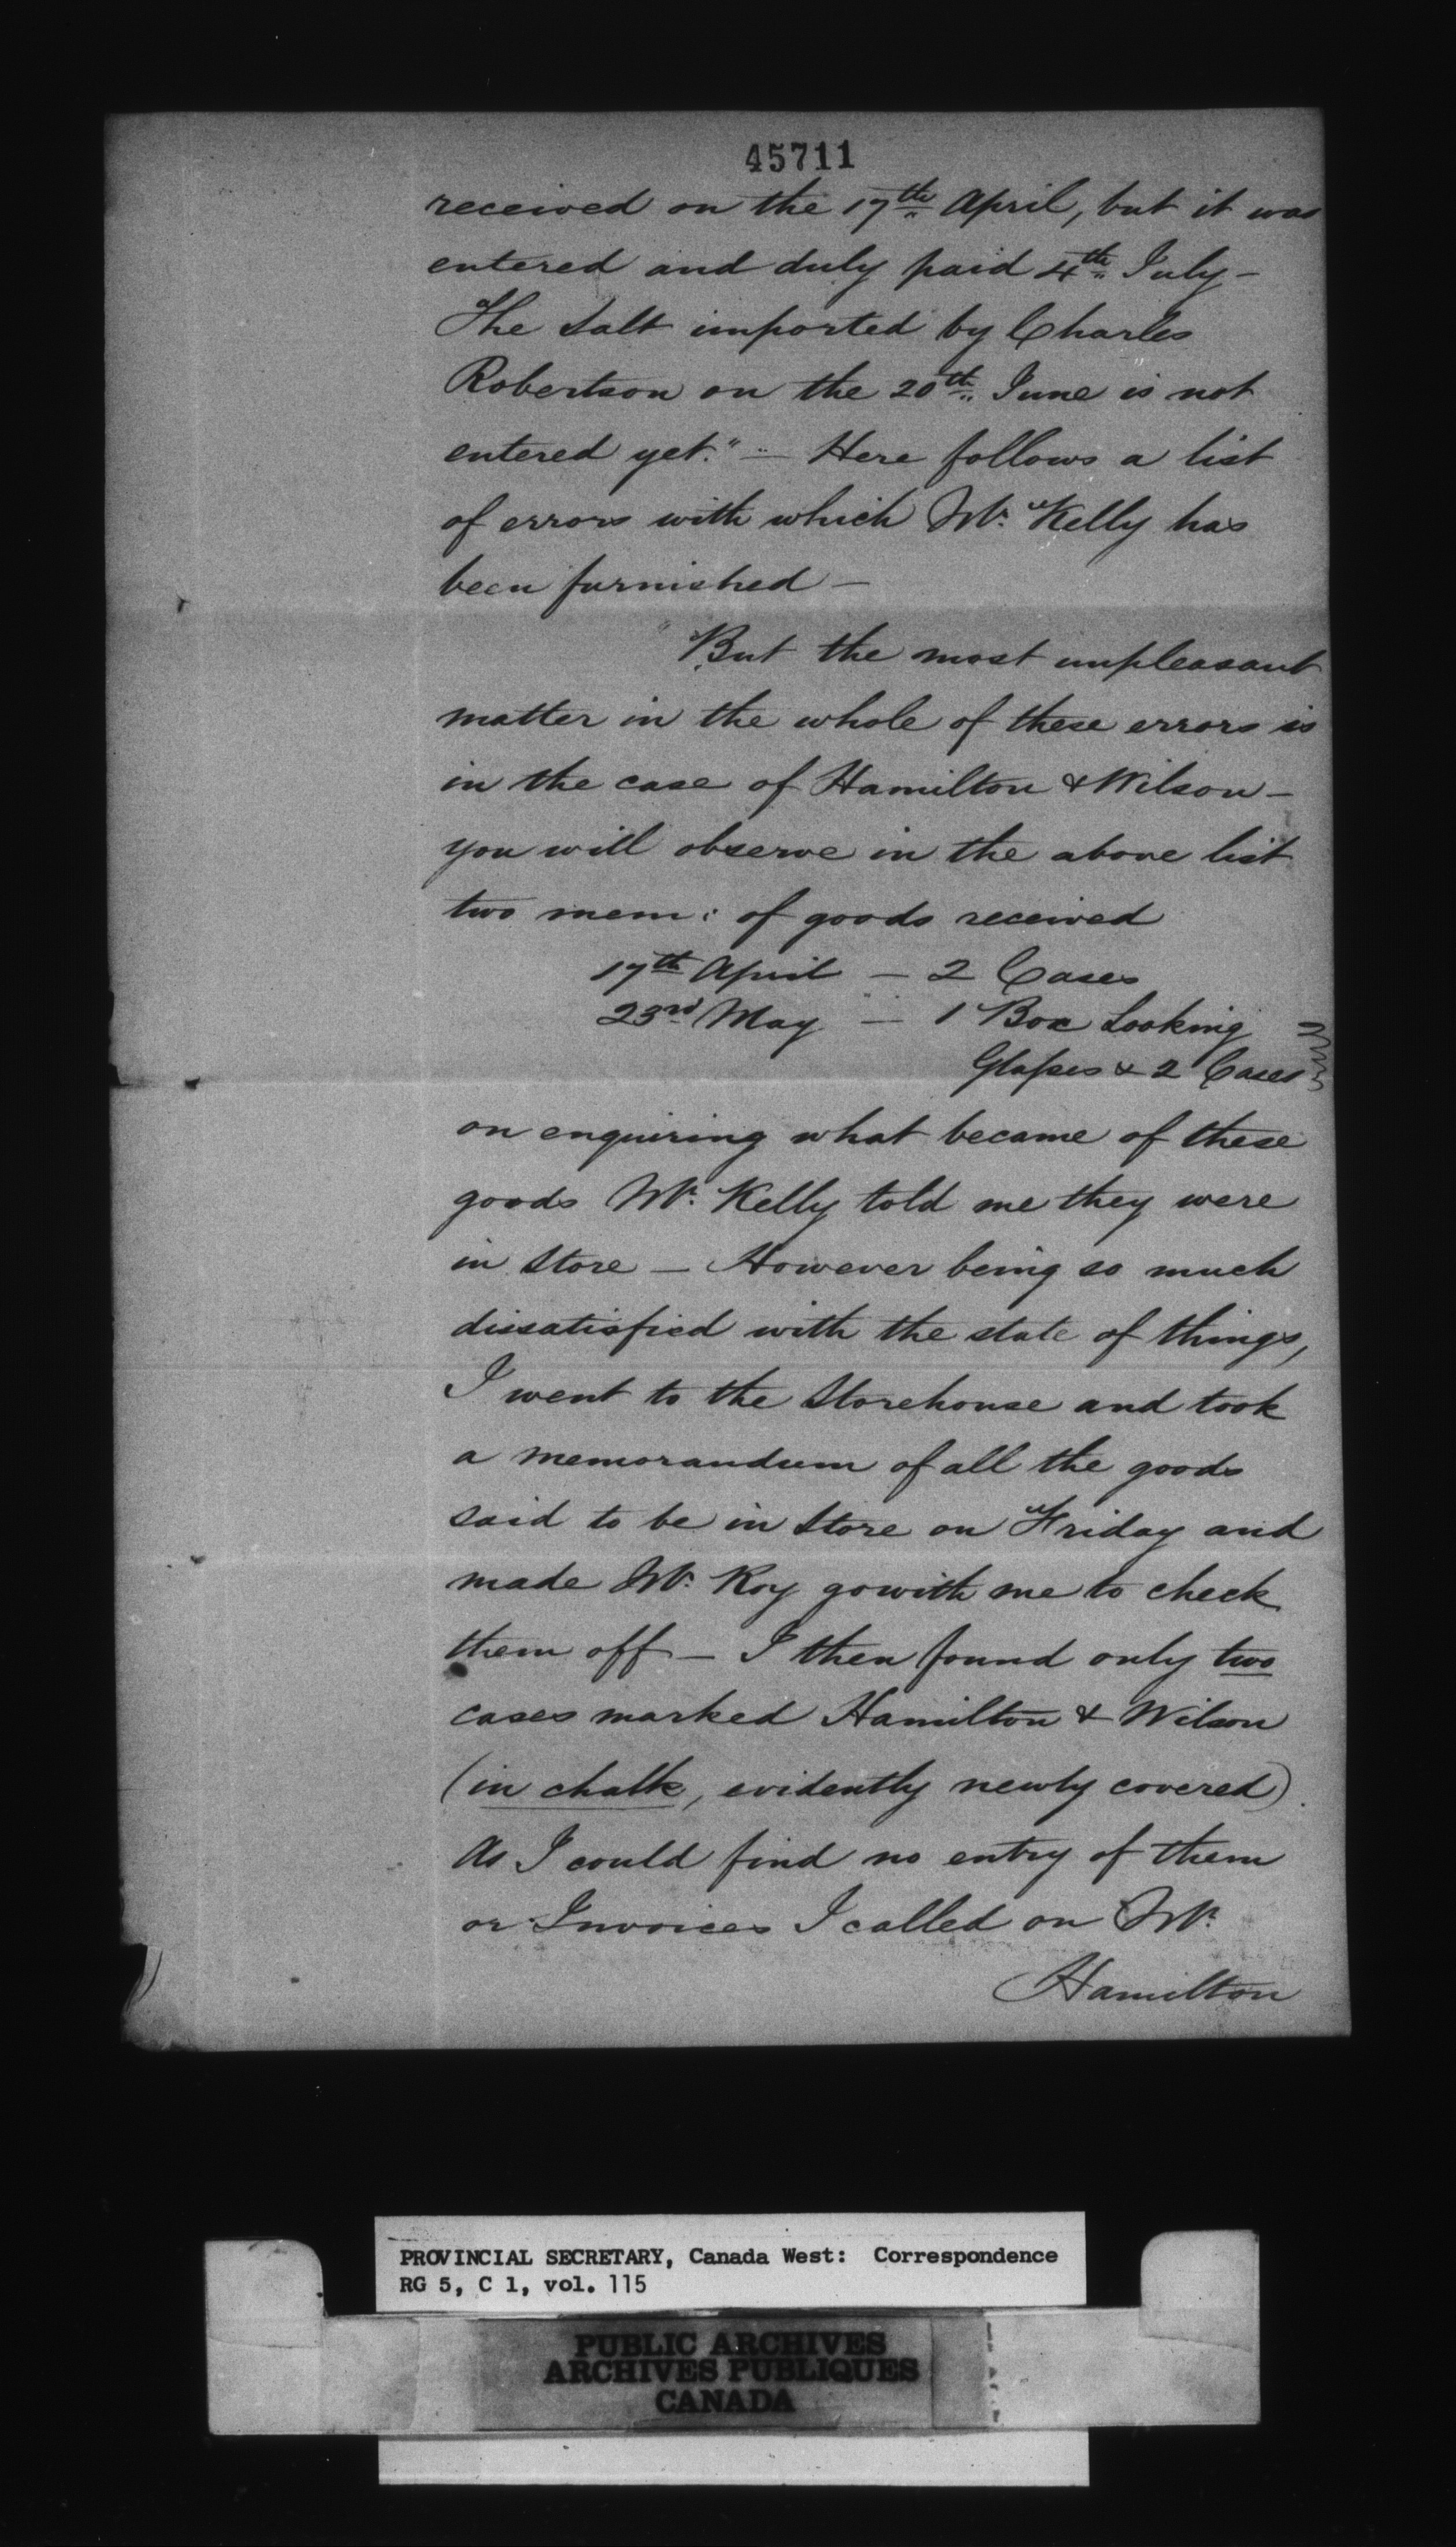 45711
received on the 17th April, but it was
entered and duly paid 4th July -
The Salt imported by Charles
Robertson on the 20th June is not
entered yet." - Here follows a list
of errors with which Mr. Kelly has
been furnished -
"But the most unpleasant
matter in the whole of these errors is
in the case of Hamilton & Wilson -
you will observe in the above list
two mem: of goods received
17th April - 2 Cases
23rd May - 1 Box Looking
Glasses & 2 Cases
on enquiring what became of these
goods Mr. Kelly told me they were
in Store - However being so much
dissatisfied with the state of things,
I went to the Storehouse and took
a memorandum of all the goods
said to be in Store on Friday and
made Mr. Roy go with me to check
them off - I then found only two
cases marked Hamilton & Wilson
(in chalk, evidently newly covered).
As I could find no entry of them
or Invoices I called on Mr.
Hamilton
PROVINCIAL SECRETARY, Canada West: Correspondence
RG 5, C 1, vol. 115
PUBLIC ARCHIVES
ARCHIVES PUBLIQUES
CANADA